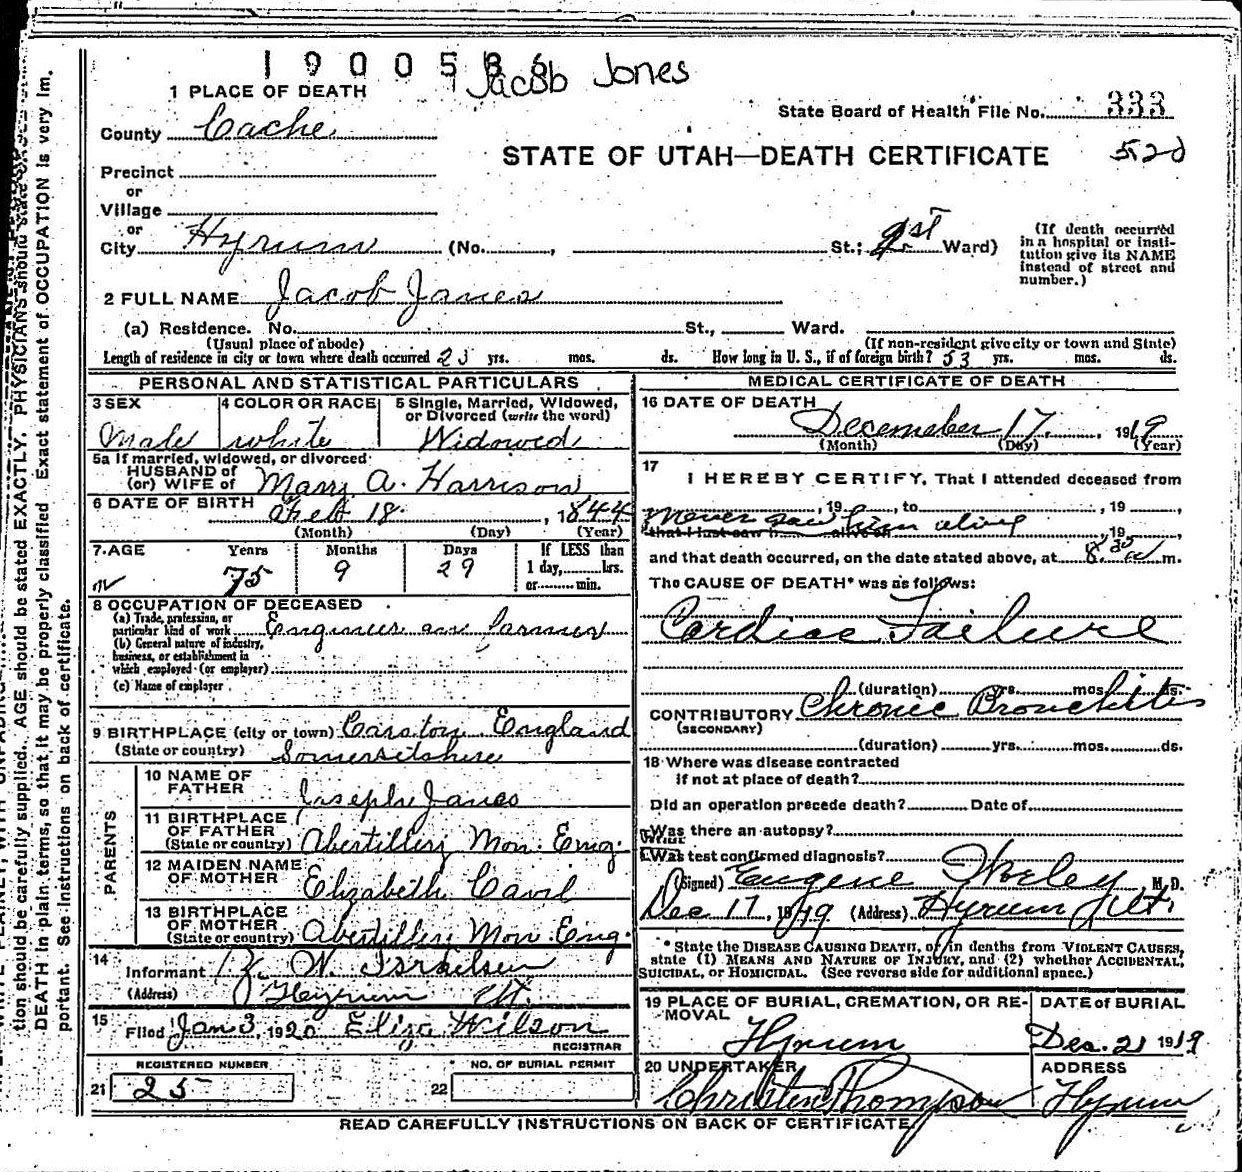 1900586 Jacob Jones
1 PLACE OF DEATH
State Board of Health File No. 333
County Cache
STATE OF UTAH—DEATH CERTIFICATE 522
Precinct
or
Village
or
City Hyrum (No. , St.; 1st Ward)
(If death occurred in a hospital or institution give its NAME instead of street and number.)
2 FULL NAME Jacob Jones
(a) Residence. No. St., Ward.
(Usual place of abode) (If non-resident give city or town and State)
Length of residence in city or town where death occurred 23 yrs. mos. ds. How long in U. S., if of foreign birth? 53 yrs. mos. ds.
PERSONAL AND STATISTICAL PARTICULARS
3 SEX 4 COLOR OR RACE 5 Single, Married, Widowed, or Divorced (write the word)
Male white Widowed
5a If married, widowed, or divorced
HUSBAND of
(or) WIFE of Mary A. Harrison
6 DATE OF BIRTH Feb 18, 1844
(Month) (Day) (Year)
7 AGE Years Months Days If LESS than
75 9 29 1 day, hrs.
or min.
8 OCCUPATION OF DECEASED
(a) Trade, profession, or
particular kind of work Engineer an farmer
(b) General nature of industry,
business, or establishment in
which employed (or employer)
(c) Name of employer
9 BIRTHPLACE (city or town) England
(State or country) Somersetshire
PARENTS
10 NAME OF
FATHER Joseph Jones
11 BIRTHPLACE
OF FATHER
(State or country) Abertillery Mon. Eng.
12 MAIDEN NAME
OF MOTHER Elizabeth Cavil
13 BIRTHPLACE
OF MOTHER
(State or country) Abertillery Mon. Eng.
14
Informant W. Israelsen
(Address) Hyrum Ut.
15
Filed Jan 3, 1920 Eliza Wilson
REGISTRAR
REGISTERED NUMBER NO. OF BURIAL PERMIT
21 25 22
MEDICAL CERTIFICATE OF DEATH
16 DATE OF DEATH
December 17, 1919
(Month) (Day) (Year)
17
I HEREBY CERTIFY, That I attended deceased from
, 19 , to , 19 ,
never saw him alive
that I last saw h alive on , 19 ,
and that death occurred, on the date stated above, at 8 30 a m.
The CAUSE OF DEATH* was as follows:
Cardiac Failure
(duration) yrs. mos. ds.
CONTRIBUTORY Chronic Bronchitis
(SECONDARY)
(duration) yrs. mos. ds.
18 Where was disease contracted
if not at place of death?
Did an operation precede death? Date of
Was there an autopsy?
What
Was test confirmed diagnosis?
(Signed) Eugene Worley M. D.
Dec 17, 1919 (Address) Hyrum Ut.
*State the DISEASE CAUSING DEATH, or in deaths from VIOLENT CAUSES,
state (1) MEANS AND NATURE OF INJURY, and (2) whether ACCIDENTAL,
SUICIDAL, or HOMICIDAL. (See reverse side for additional space.)
19 PLACE OF BURIAL, CREMATION, OR RE- DATE of BURIAL
MOVAL
Hyrum Dec. 21 1919
20 UNDERTAKER ADDRESS
Christen Thompson Hyrum
READ CAREFULLY INSTRUCTIONS ON BACK OF CERTIFICATE.
tion should be carefully supplied. AGE should be stated EXACTLY. PHYSICIANS should state
DEATH in plain terms, so that it may be properly classified. Exact statement of OCCUPATION is very im-
portant. See instructions on back of certificate.